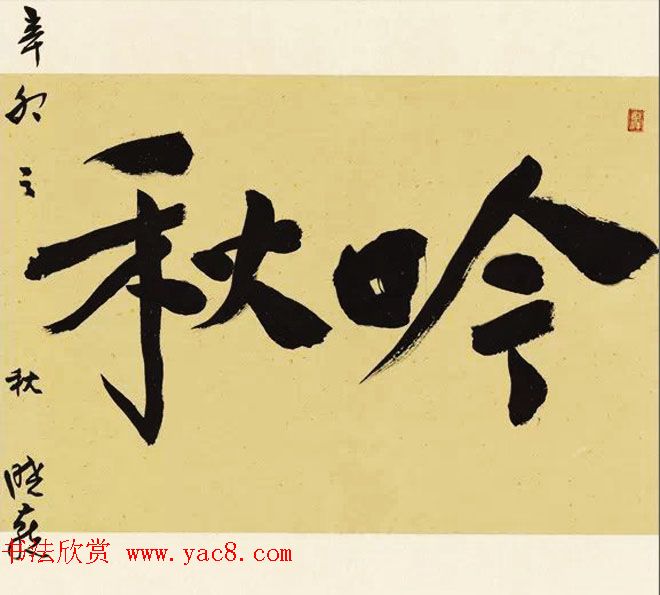 吟秋
辛卯之秋 晓
书法欣赏 www.yac8.com